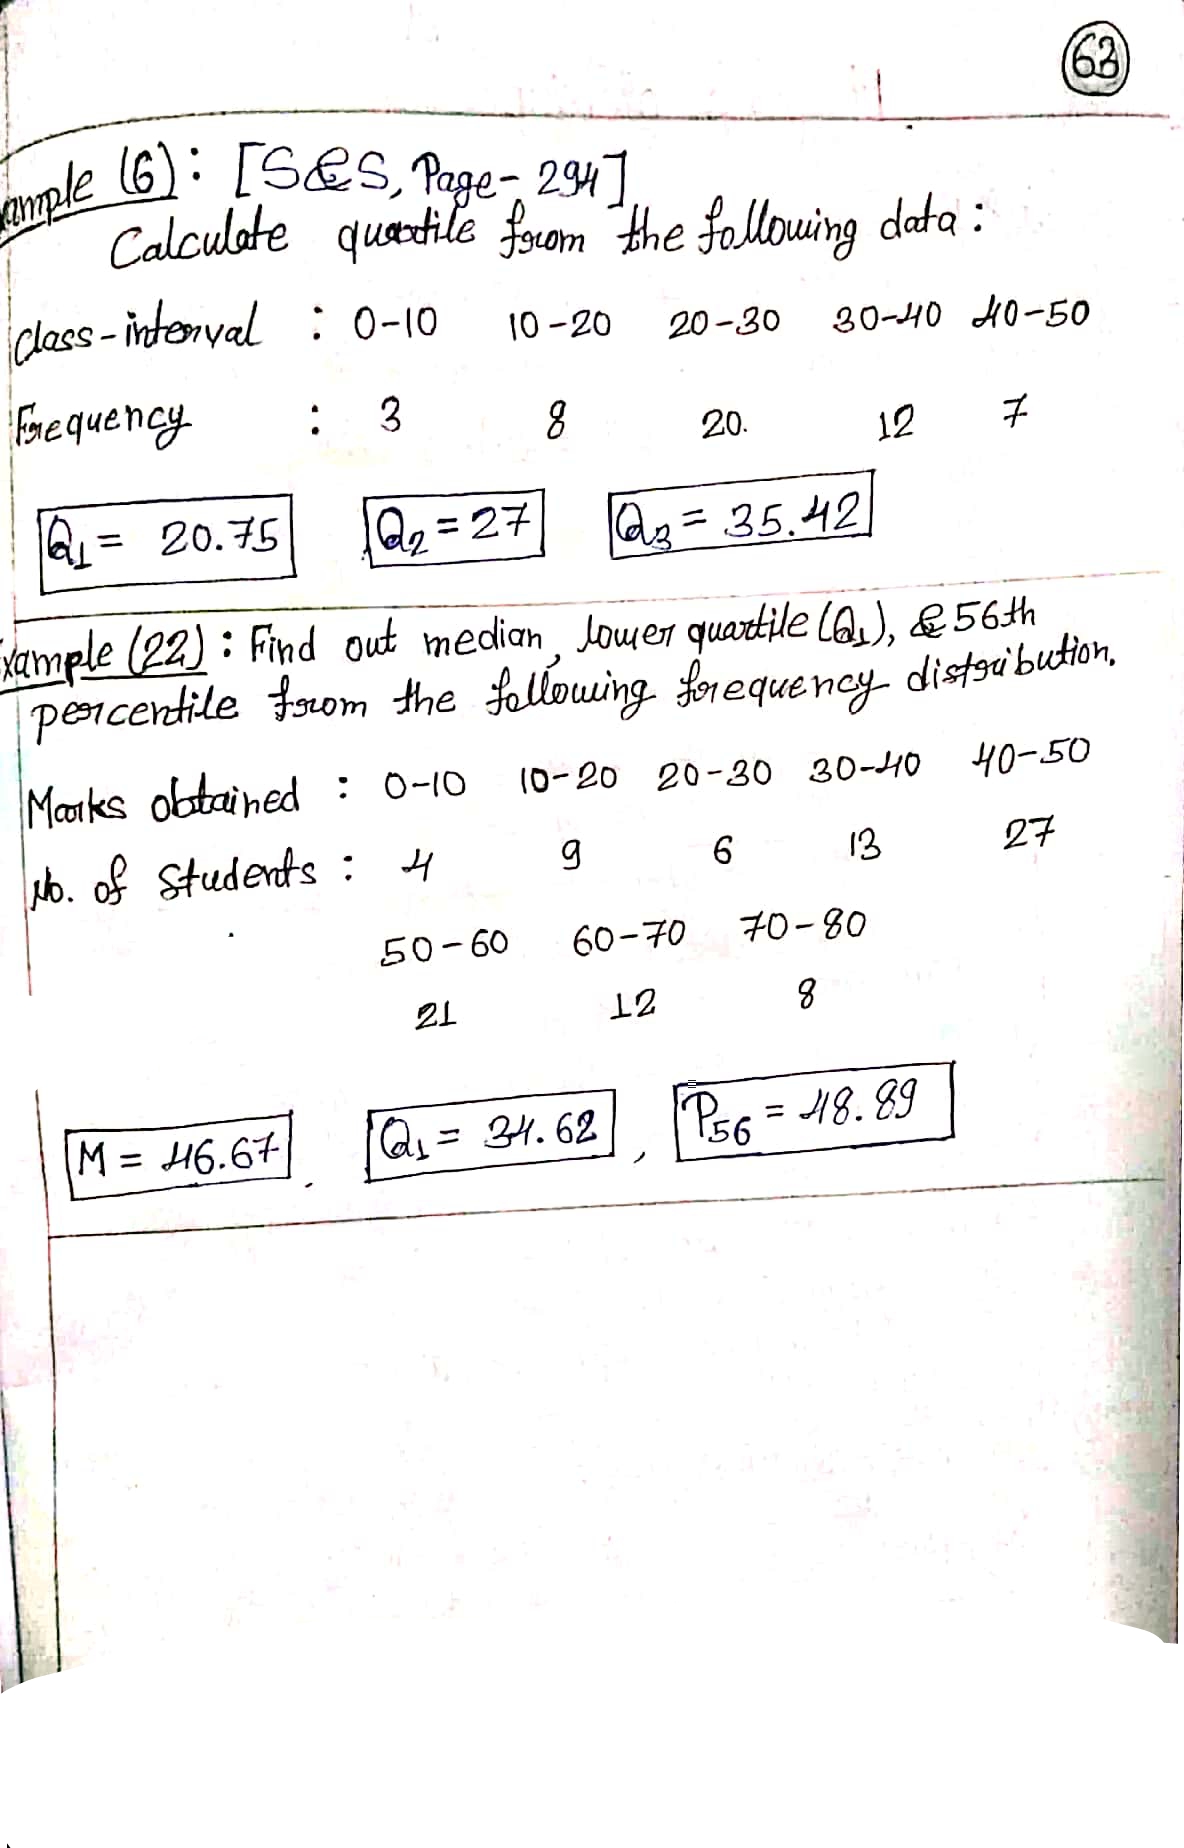 63
ample (6): [S&S, Page- 294]
Calculate quartile from the following data:
Class-interval : 0-10 10-20 20-30 30-40 40-50
Frequency : 3 8 20. 12 7
Q₁ = 20.75 Q₂ = 27 Q₃ = 35.42
xample (22): Find out median, lower quartile (Q₁), & 56th
percentile from the following frequency distribution.
Marks obtained : 0-10 10-20 20-30 30-40 40-50
No. of Students : 4 9 6 13 27
50-60 60-70 70-80
21 12 8
M = 46.67, Q₁ = 34.62, P₅₆ = 48.89